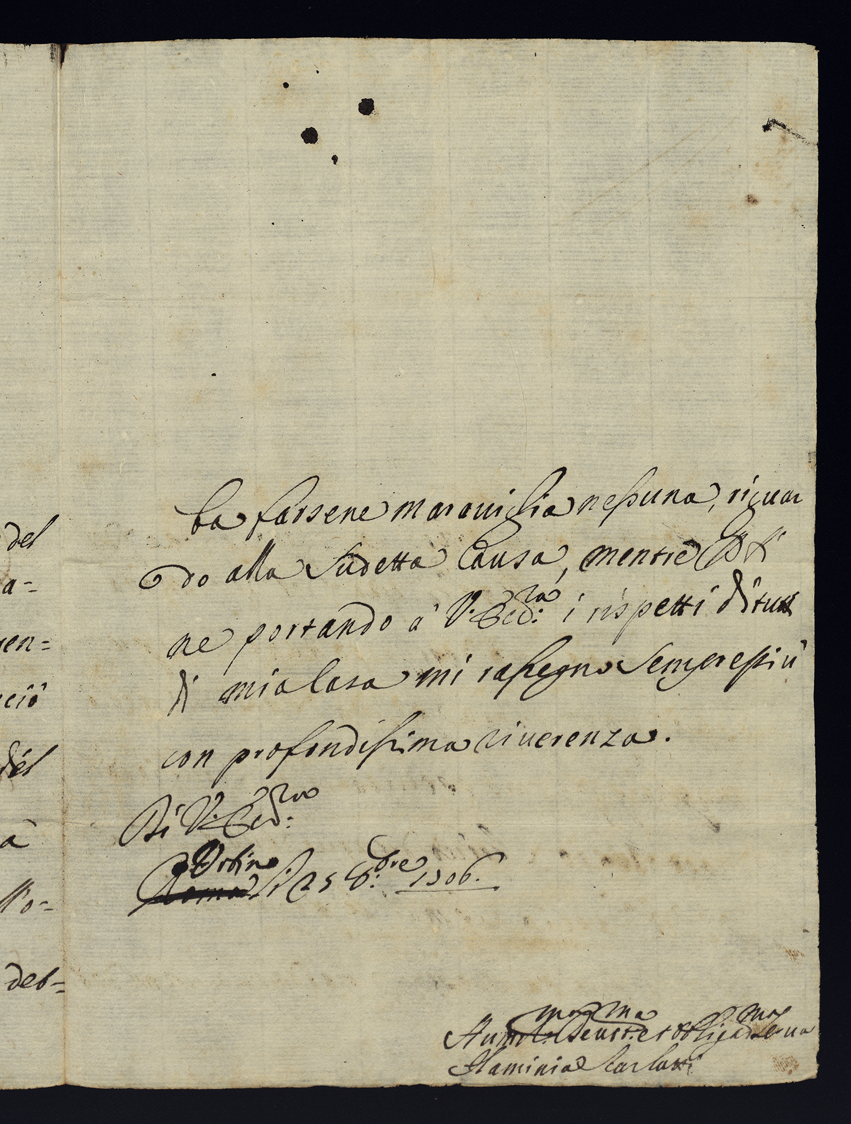 del
a-
gen=
ciò
del
à
ll'o-
deb=
ba farsene marauiglia nessuna, riguar
do alla sudetta Causa, mentre
ne portando à V. Ecc.za i rispetti di tutta
di mia Casa mi rassegno sempre più
con profondissima riuerenza.
Di V. Ecc.za
Urbino
Roma li 25 8.bre 1706.
Hum.ma Deu.ma et Obligat.ma Serua
Flaminia Scarlatti